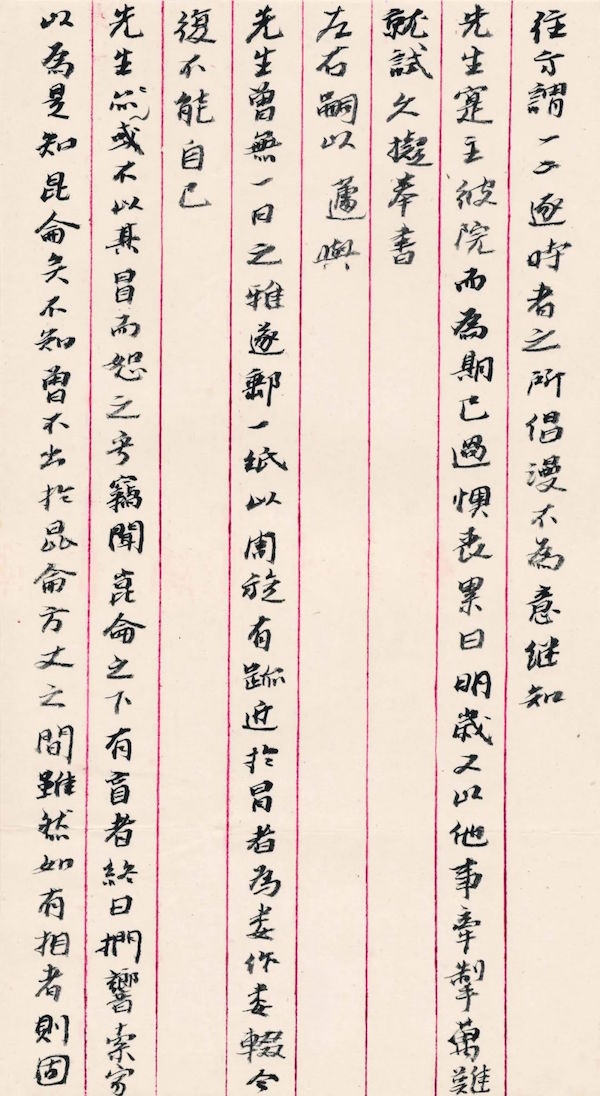 往亦謂一二逐時者之所倡漫不為意継知
先生寔主彼院而為期已過懊喪累日明歲又以他事牽掣萬難
就試久擬奉書
左右嗣以蘧與
先生曾無一日之雅遂郵一紙以周旋有跡近於冒者為婁作婁輟今
復不能自已
先生亦或不以其冒而恕之乎竊聞崑侖之下有盲者終日捫響索
以為是知昆侖矣不知曾不出於昆侖方丈之間雖然如有相者則固